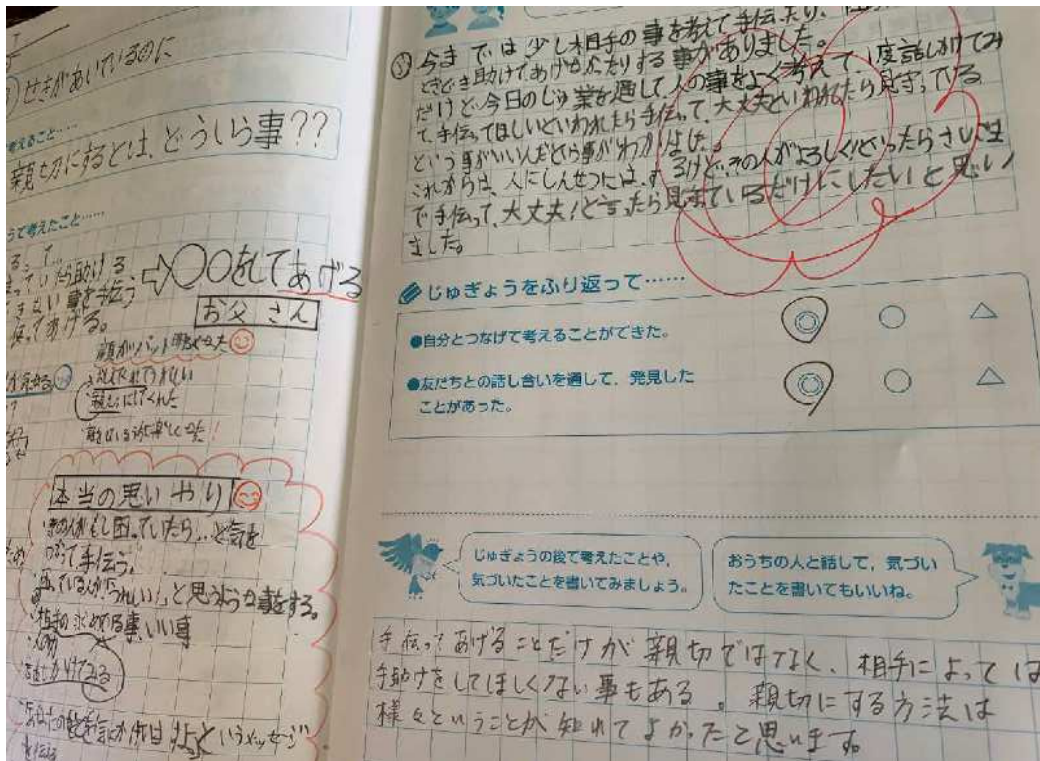 せきがあいているのに
考えること……
親切にするとは、どういう事??
って考えたこと……
ていたら助ける、
きない事を手伝う
てあげる。
⇨〇〇をしてあげる
お父さん
顔がパッと
うれしい
親切にしてくれた
本当の思いやり
もし困っていたら…と気を
つかって手伝う。
「うれしい!」と思うような事をする。
相手の求めてる事、いい事
話しかけてみる
というメッセージ
今までは少し相手の事を考えて手伝ったり、
ときどき助けてあげなかったりする事がありました。
だけど今日のじゅ業を通して人の事をよく考えて1度話しかけてみ
て、手伝ってほしいといわれたら手伝って、大丈夫といわれたら見守っている
という事がいいんだという事がわかりました。
これからは、人にしんせつには、するけど、その人がよろしく!といったらさいごま
で手伝って、大丈夫!と言ったら見守っているだけにしたいと思い
ました。
じゅぎょうをふり返って……
●自分とつなげて考えることができた。
●友だちとの話し合いを通して、発見した
ことがあった。
じゅぎょうの後で考えたことや、
気づいたことを書いてみましょう。
おうちの人と話して、気づい
たことを書いてもいいね。
手伝ってあげることだけが親切ではなく、相手によっては
手助けをしてほしくない事もある。親切にする方法は
様々ということが知れてよかったと思います。